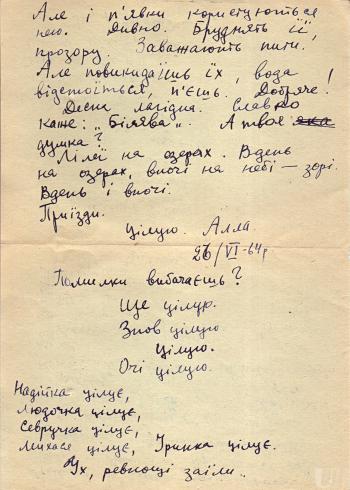 Але і п'явки користуються
нею. Дивно. Бруднять її,
прозору. Заважають пити.
Але повикидаїшь їх, вода
відстоїться, п'єшь. Добряче!
Десна лагідна. Славко
каже: "Білява". А твоя яка
думка?
Лілеї на озерах. Вдень
на озерах, вночі на небі — зорі.
Вдень і вночі.
Приїзди.
Цілую. Алла.
26/VI-64р
Помилки вибачаєшь?
Ще цілую.
Знов цілую
Цілую.
Очі цілую.
Надійка цілує,
Людочка цілує,
Севручка цілує,
Михась цілує, Іринка цілує.
Ух, ревнощі заїли..